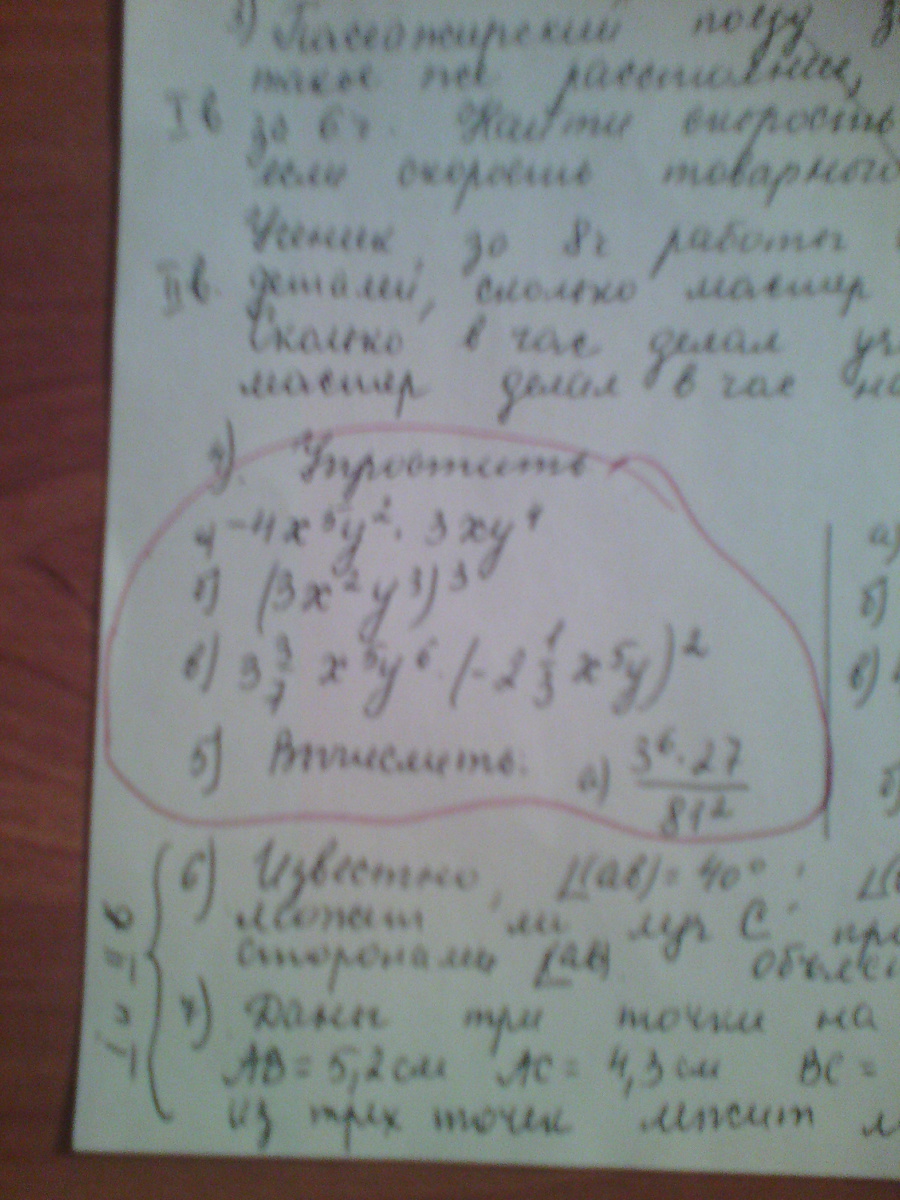 3) Пассажирский поезд з
такое же расстояние,
I в за 6 ч. Найти скорость
если скорость товарного
Ученик за 8ч работы
II в. деталей, сколько мастер
Сколько в час делал уч
мастер делал в час на
4). Упростить
а) -4x⁵y² · 3xy⁴
б) (3x²y³)³
в) 3 3/7 x⁵y⁶ · (-2 1/3 x⁵y)²
5) Вычислить: а) 3⁶·27/81²
а)
б)
в)
б)
I и II в
6) Известно, ∠(ab) = 40°, ∠(
может ли луч C про
сторонами ∠(ab). Объяс
7) Даны три точки на
AB = 5,2 см AC = 4,3 см BC =
из трех точек лежит м